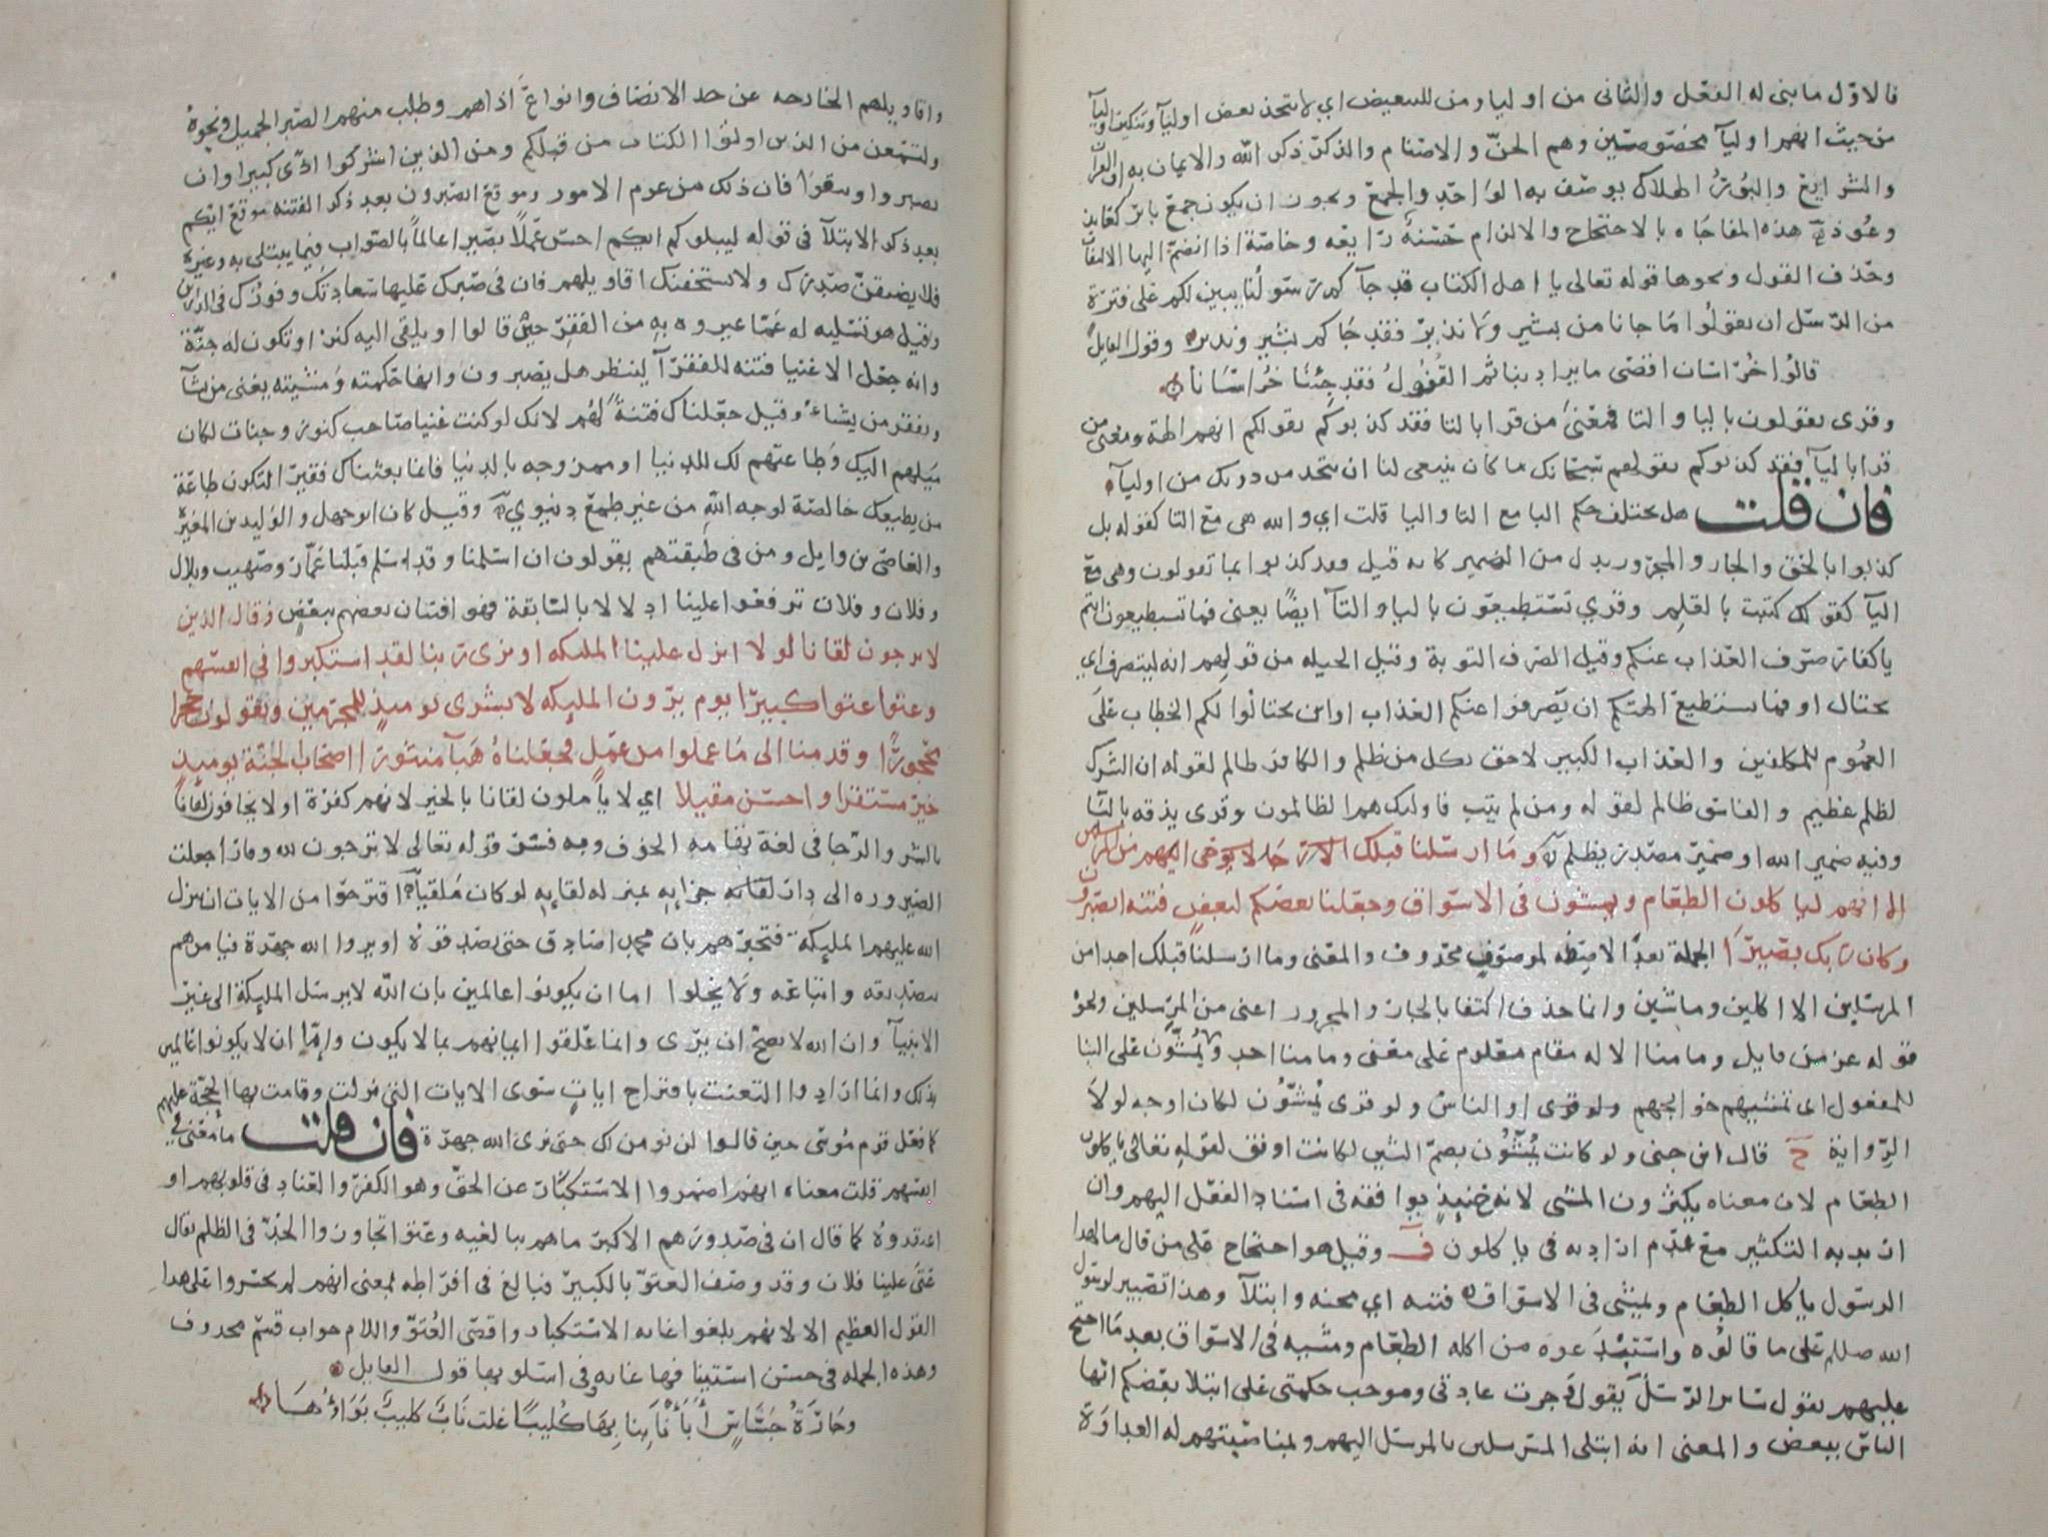 فالاول ما بنى له الفعل والثاني من اولياء ومن للتبعيض اي لا نتخذ بعض اولياء وتنكير اولياء
من حيث انهم اولياء مخصوصين وهم الجن والاصنام والذكر ذكر الله والايمان به او القرآن
والشرايع والبور الهلاك يوصف به الواحد والجمع ويجوز ان يكون جمع باير كعايذ
وعوذ هذه المفاجاه بالاحتجاج والالزام حسنة رايعه وخاصة اذا انضم اليها الالتفات
وحذف القول ونحوها قوله تعالى يا اهل الكتاب قد جآكم رسولنا يبين لكم على فترة
من الرسل ان تقولوا ما جانا من بشير ولا نذير فقد جاكم بشير ونذير وقول القايل
قالوا خراسان اقصى ما يراد بنا ثم القفول فقد جئنا خراسانا
وقرى يقولون باليا والتا فمعنى من قرا بالتا فقد كذبوكم بقولكم انهم الهة ومعنى من
قرا باليآ فقد كذبوكم بقولهم سبحانك ما كان ينبغى لنا ان نتخذ من دونك من اوليآ
فان قلت هل يختلف حكم البا مع التا واليا قلت اي والله هى مع التا كقوله بل
كذبوا بالحق والجار والمجرور بدل من الضمير كانه قيل فقد كذبوا بما تقولون وهى مع
اليآ كقولك كتبت بالقلم وقرى تستطيعون باليا والتآ ايضا يعنى فما تستطيعون انتم
يا كفار صرف العذاب عنكم وقيل الصرف التوبة وقيل الحيله من قولهم انه ليتصرف اي
يحتال او فما يستطيع الهتكم ان يصرفوا عنكم العذاب او ان يحتالوا لكم الخطاب على
العموم للمكلفين والعذاب الكبير لاحق بكل من ظلم والكافر ظالم لقوله ان الشرك
لظلم عظيم والفاسق ظالم لقوله ومن لم يتب فاوليك هم الظالمون وقرى يذقه باليا
وفيه ضمير الله او ضمير مصدر يظلم وما ارسلنا قبلك الا رجالا يوحى اليهم من المرسلين
الا انهم لياكلون الطعام ويمشون في الاسواق وجعلنا بعضكم لبعض فتنه اتصبرون
وكان ربك بصيرا الجملة بعد الا صفه لموصوف محذوف والمعنى وما ارسلنا قبلك احدا من
المرسلين الا اكلين وماشين وانما حذف اكتفا بالجار والمجرور اعنى من المرسلين ونحوه
قوله عز من قايل وما منا الا له مقام معلوم على معنى وما منا احد ويمشون على البنا
للمفعول اى تمشيهم حوايجهم او الناس ولو قرى يمشون لكان اوجه لولا
الرواية ح قال ابن جنى ولو كانت يمشون بضم الشين لكانت اوفق لقوله تعالى ياكلون
الطعام لان معناه يكثرون المشى لانه حينيذ يوافقه في اسناد الفعل اليهم وان
اريد به التكثير مع عدم ارادته في ياكلون ف وقيل هو احتجاج على من قال ما لهذا
الرسول ياكل الطعام ويمشى في الاسواق فتنه اي محنه وابتلآ وهذا تصبير لرسول
الله صللم على ما قالوه واستبدعوه من اكله الطعام ومشيه في الاسواق بعد ما احتج
عليهم بقول ساير الرسل يقول جرت عادتى وموجب حكمتى على ابتلا بعضكم ايها
الناس ببعض والمعنى انه ابتلى المرسلين بالمرسل اليهم وبمناصبتهم له العداوة
واقاويلهم الخارجه عن حد الانصاف وانواع اذاهم وطلب منهم الصبر الجميل ونحوه
ولتسمعن من الذين اوتوا الكتاب من قبلكم ومن الذين اشركوا اذى كبيرا وان
تصبروا وتتقوا فان ذلك من عزم الامور وموقع اتصبرون بعد ذكر الفتنه موقع ايكم
بعد ذكر الابتلآ في قوله ليبلوكم ايكم احسن عملا بصيرا عالما بالصواب فيما يبتلى به وغيره
فلا يضيقن صدرك ولا يستخفنك اقاويلهم فان في صبرك عليها سعادتك وفوزك في الدارين
وقيل هو تسليه له عما عيروه به من الفقر حين قالوا او يلقى اليه كنز او تكون له جنة
وانه جعل الاغنيا فتنه للفقرآ لينظر هل يصبرون وانها حكمته ومشيته يغنى من يشآ
ويفقر من يشاء وقيل جعلناك فتنة لهم لانك لو كنت غنيا صاحب كنوز وجنات لكان
ميلهم اليك وطاعتهم لك للدنيا او ممزوجه بالدنيا فانما بعثناك فقيرا لتكون طاعة
من يطيعك خالصة لوجه الله من غير طمع دنيوي وقيل كان ابو جهل والوليد بن المغيرة
والعاصى بن وايل ومن في طبقتهم يقولون ان اسلمنا وقد اسلم قبلنا عمار وصهيب وبلال
وفلان وفلان ترفعوا علينا ادلالا بالسابقة فهو افتتان بعضهم ببعض وقال الذين
لا يرجون لقانا لولا انزل علينا المليكه او نرى ربنا لقد استكبروا في انفسهم
وعتوا عتوا كبيرا يوم يرون المليكه لا بشرى يوميذ للمجرمين ويقولون حجرا
محجورا وقدمنا الى ما عملوا من عمل فجعلناه هبآ منثورا اصحاب الجنة يوميذ
خير مستقرا واحسن مقيلا اي لا ياملون لقانا بالخير لانهم كفرة او لا يخافون لقانا
بالشر والرجا في لغة تهامه الخوف وبه فسر قوله تعالى لا ترجون لله وقارا جعلت
الصيروره الى دار لقائه جزايه بمنزله لقايه لو كان ملقيا اقترحوا من الايات ان ينزل
الله عليهم المليكة فتخبرهم بان محمدا صادق حتى يصدقوه او يروا الله جهرة فيامرهم
بتصديقه واتباعه ولا يخلوا اما ان يكونوا عالمين بان الله لا يرسل المليكة الى غير
الانبيآ وان الله لا يصح ان يرى وانما علقوا ايمانهم بما لا يكون واما ان لا يكونوا عالمين
بذلك وانما ارادوا التعنت باقتراح ايات سوى الايات التى نزلت وقامت بها الحجة عليهم
كما فعل قوم موسى حين قالوا لن نومن لك حتى نرى الله جهرة فان قلت ما معنى في
انفسهم قلت معناه انهم اضمروا الاستكبار عن الحق وهو الكفر والعناد في قلوبهم او
اعتقدوه كما قال ان في صدورهم الا كبر ما هم ببالغيه وعتوا تجاوزوا الحد في الظلم يقال
عتى علينا فلان وقد وصف العتو بالكبير فبالغ في افراطه بمعنى انهم لم يجسروا على هذا
القول العظيم الا لانهم بلغوا غايه الاستكبار واقصى العتو واللام جواب قسم محذوف
وهذه الجمله في حسن استينافها غايه وفي اسلوبها قول القايل
وجارة جساس ابأنا بنابها كليبا غلت ناب كليب بواؤها